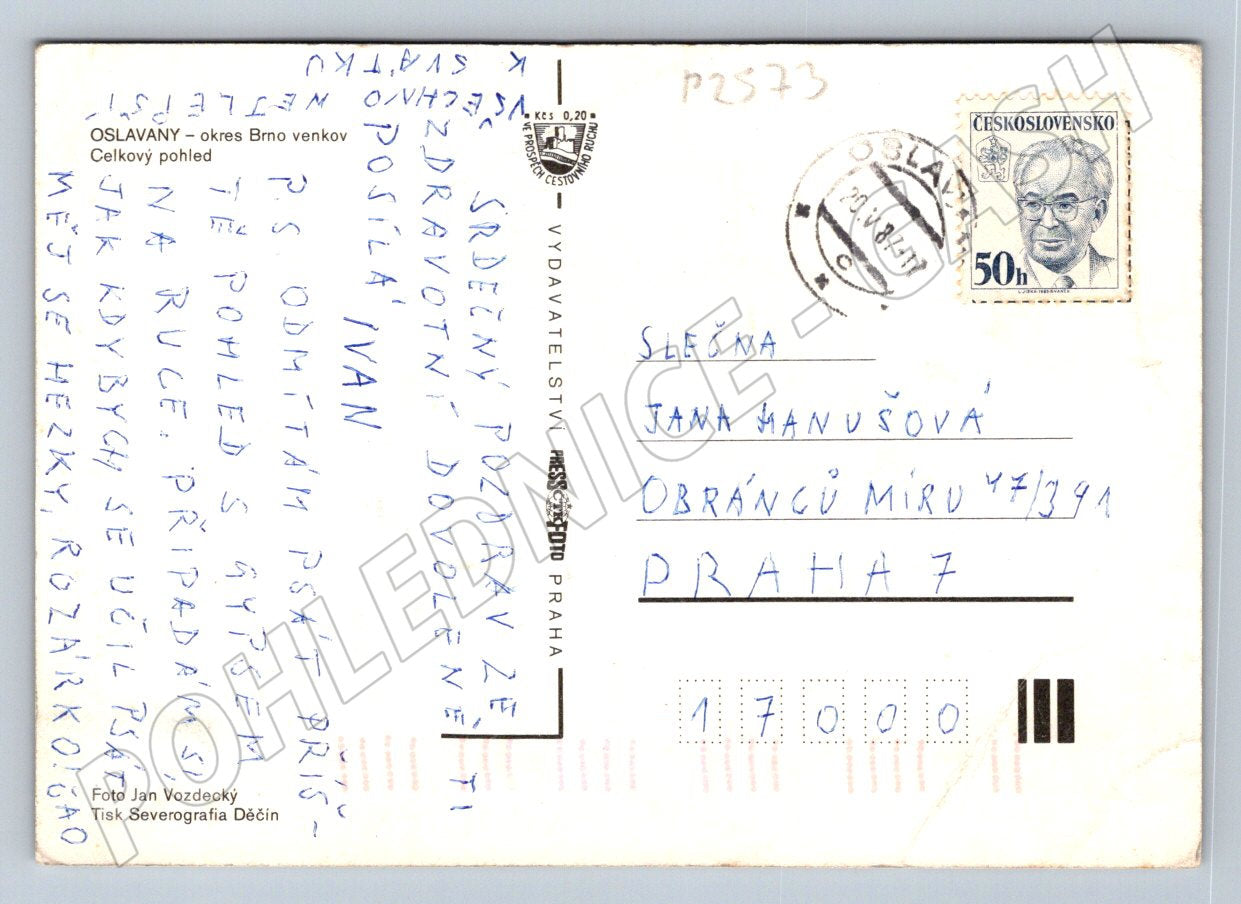 P2573
OSLAVANY – okres Brno venkov
Celkový pohled
VŠECHNO NEJLEPŠÍ
K SVÁTKU
SRDEČNÝ POZDRAV ZE
ZDRAVOTNÍ DOVOLENÉ TI
POSÍLÁ
IVAN
P.S. ODMÍTÁM PSÁT PŘÍŠ-
TĚ POHLED S GYPSEM
NA RUCE. PŘIPADÁM SI,
JAK KDYBYCH SE UČIL PSÁT
MĚJ SE HEZKY, ROZÁRKO! ČAO
Foto Jan Vozdecký
Tisk Severografia Děčín
Kčs 0,20
VE PROSPĚCH CESTOVNÍHO RUCHU
VYDAVATELSTVÍ PRESSFOTO PRAHA
ČTK
OSLAVANY
20.V.87-17
c
ČESKOSLOVENSKO
50h
SLEČNA
JANA HANUŠOVÁ
OBRÁNCŮ MÍRU 47/391
PRAHA 7
17000
POHLEDNICE - GASH